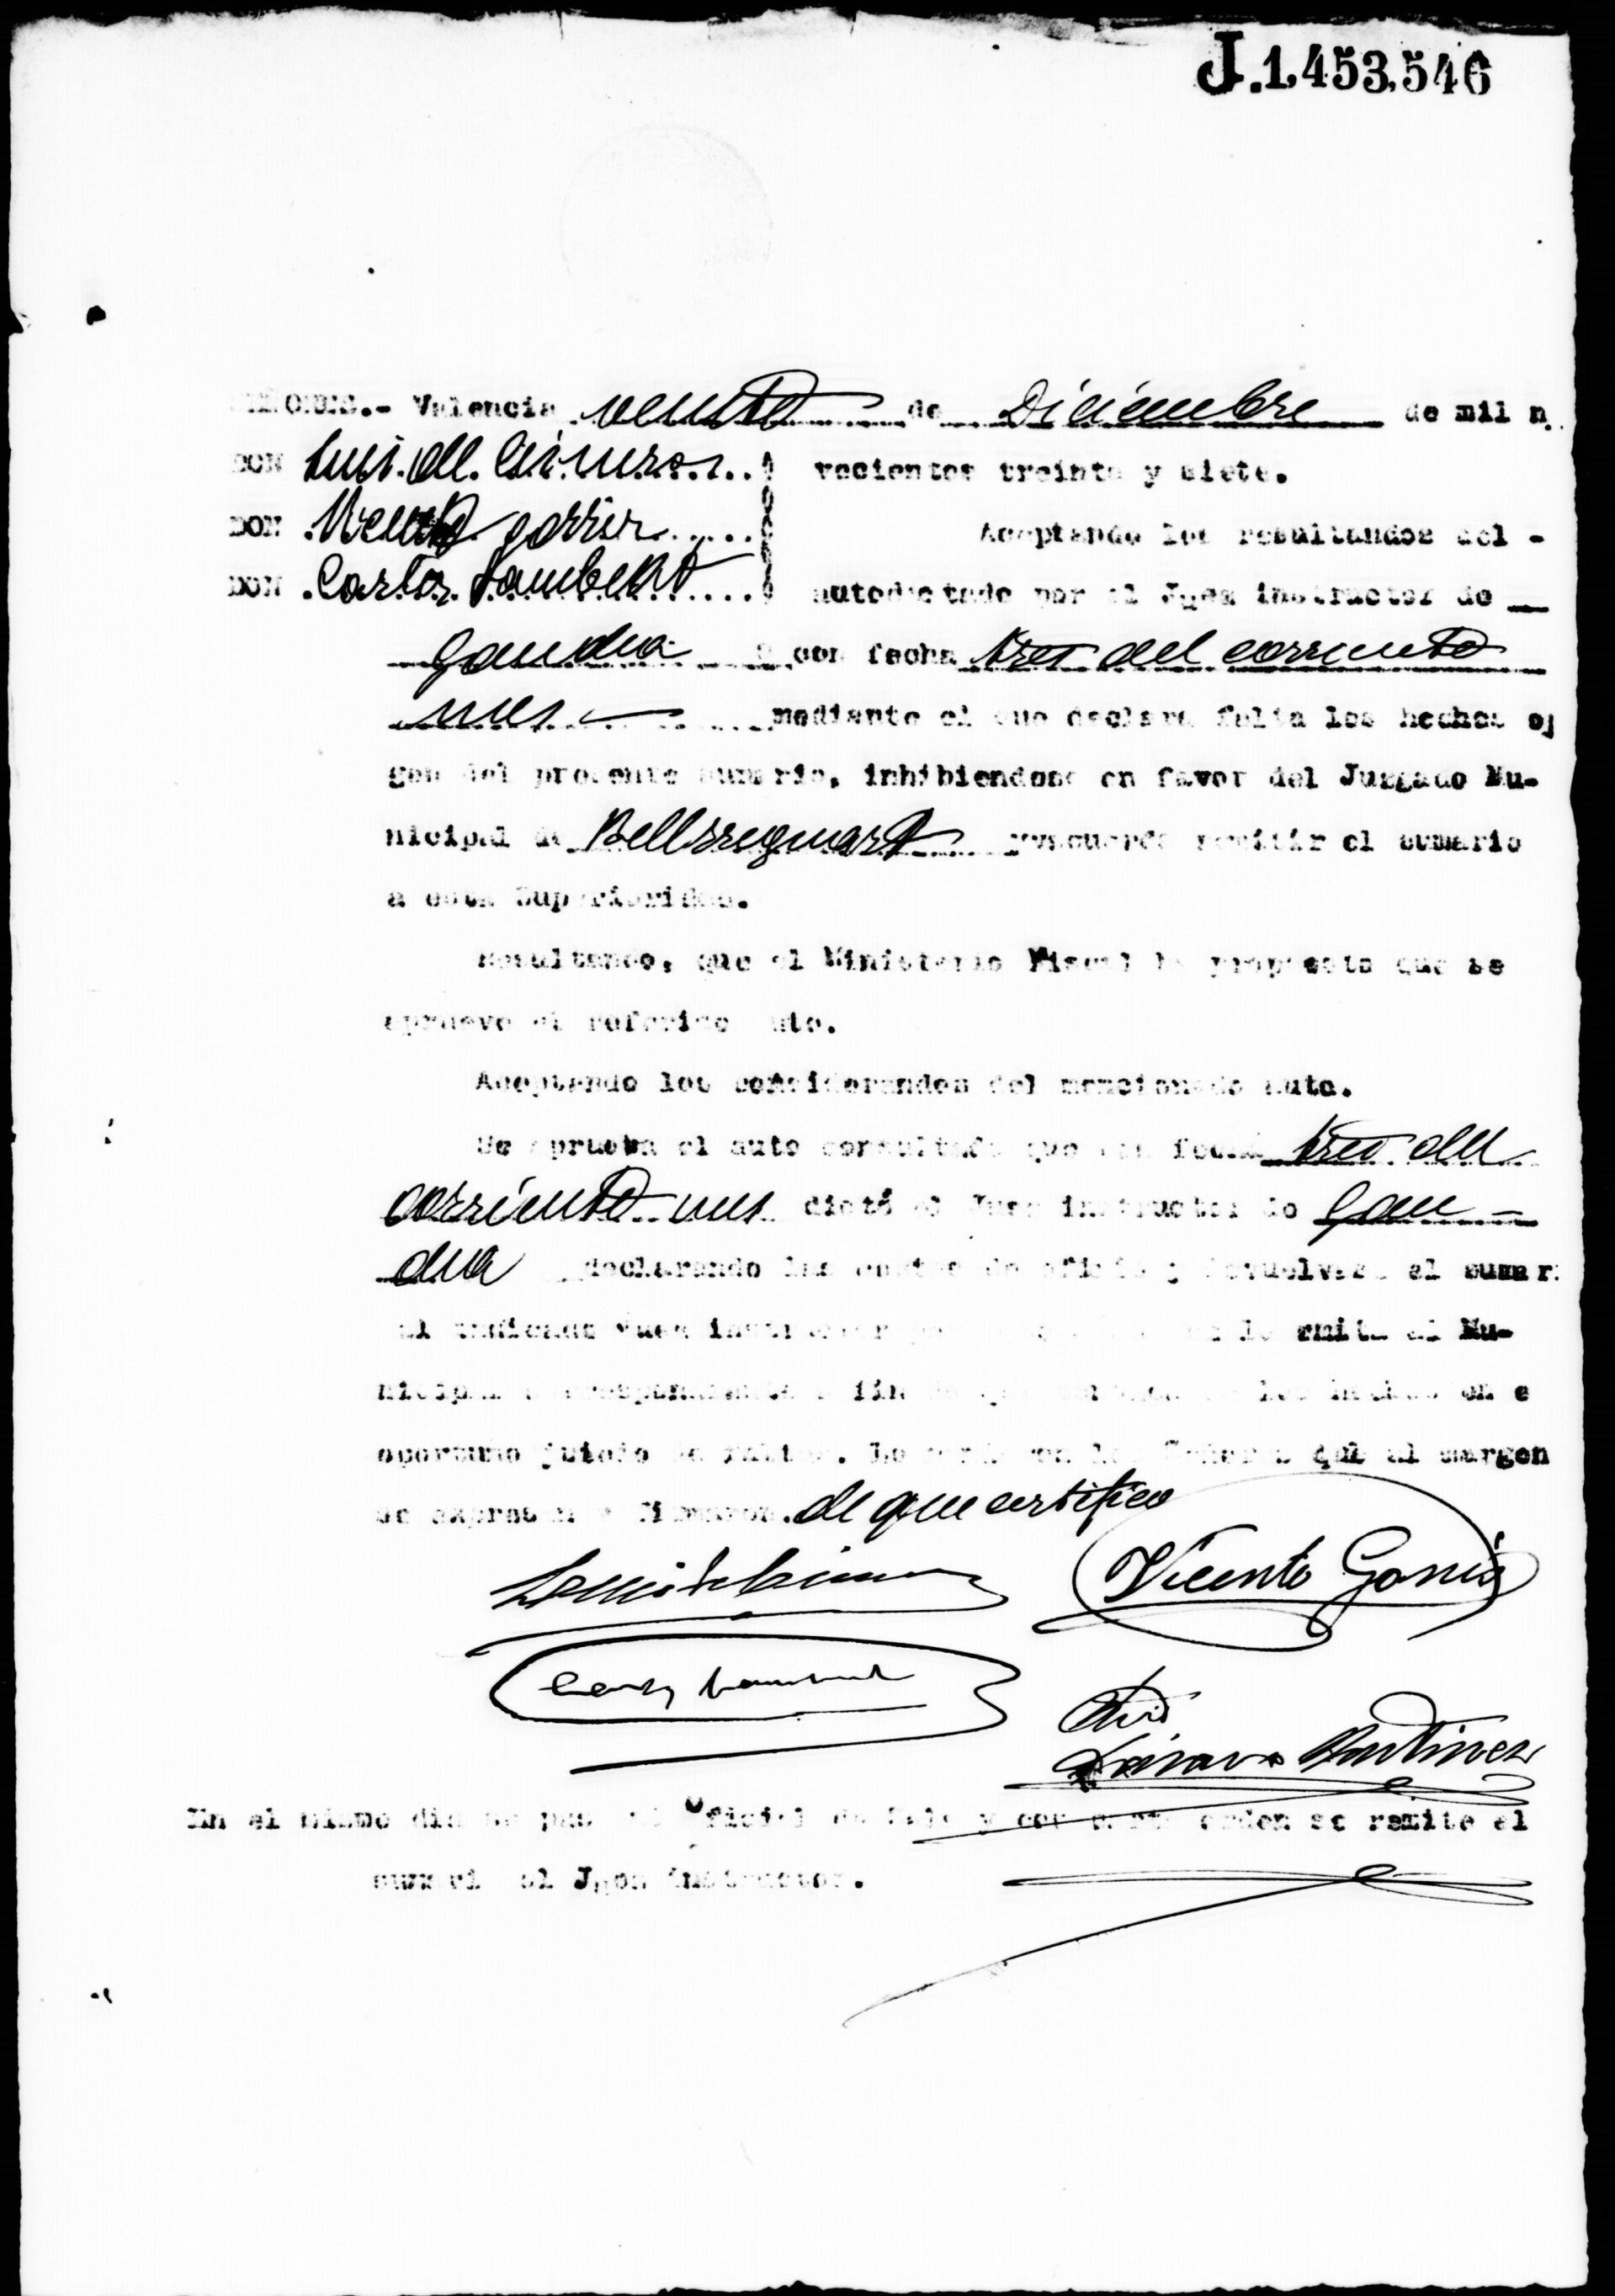 J.1.453.546
SEÑORES.- Valencia veinte de Diciembre de mil n
DON Luis M. Gimeno recientos treinta y siete.
DON Vicente
Aceptando los resultandos del -
DON Carlos Lambert autodictado por el Juez instructor de
Gandia con fecha tres del corriente
mes mediante el que declara falta los hechos
gen del presente sumario, inhibiendose en favor del Juzgado Mu-
nicipal de Bellreguart remitir el sumario
a esta Superioridad.
Resultando, que el Ministerio Fiscal ha propuesto que se
aprueve el referido auto.
Aceptando los considerandos del mencionado auto.
Se aprueba el auto consultado que con fecha tres del
corriente mes dictó el Juez instructor de Gan-
dia declarando las costas de oficio y devuelvase el sumar
al indicado Juez instructor remita al Mu-
nicipal correspondiente a fin de que los hechos en e
oportuno juicio de faltas. Lo Señores que al margen
se expresan y firmaron. de que certifico
Vicente
Martinez
En el mismo dia Oficial de Sala y con orden se remite el
sumari al Juez instructor.